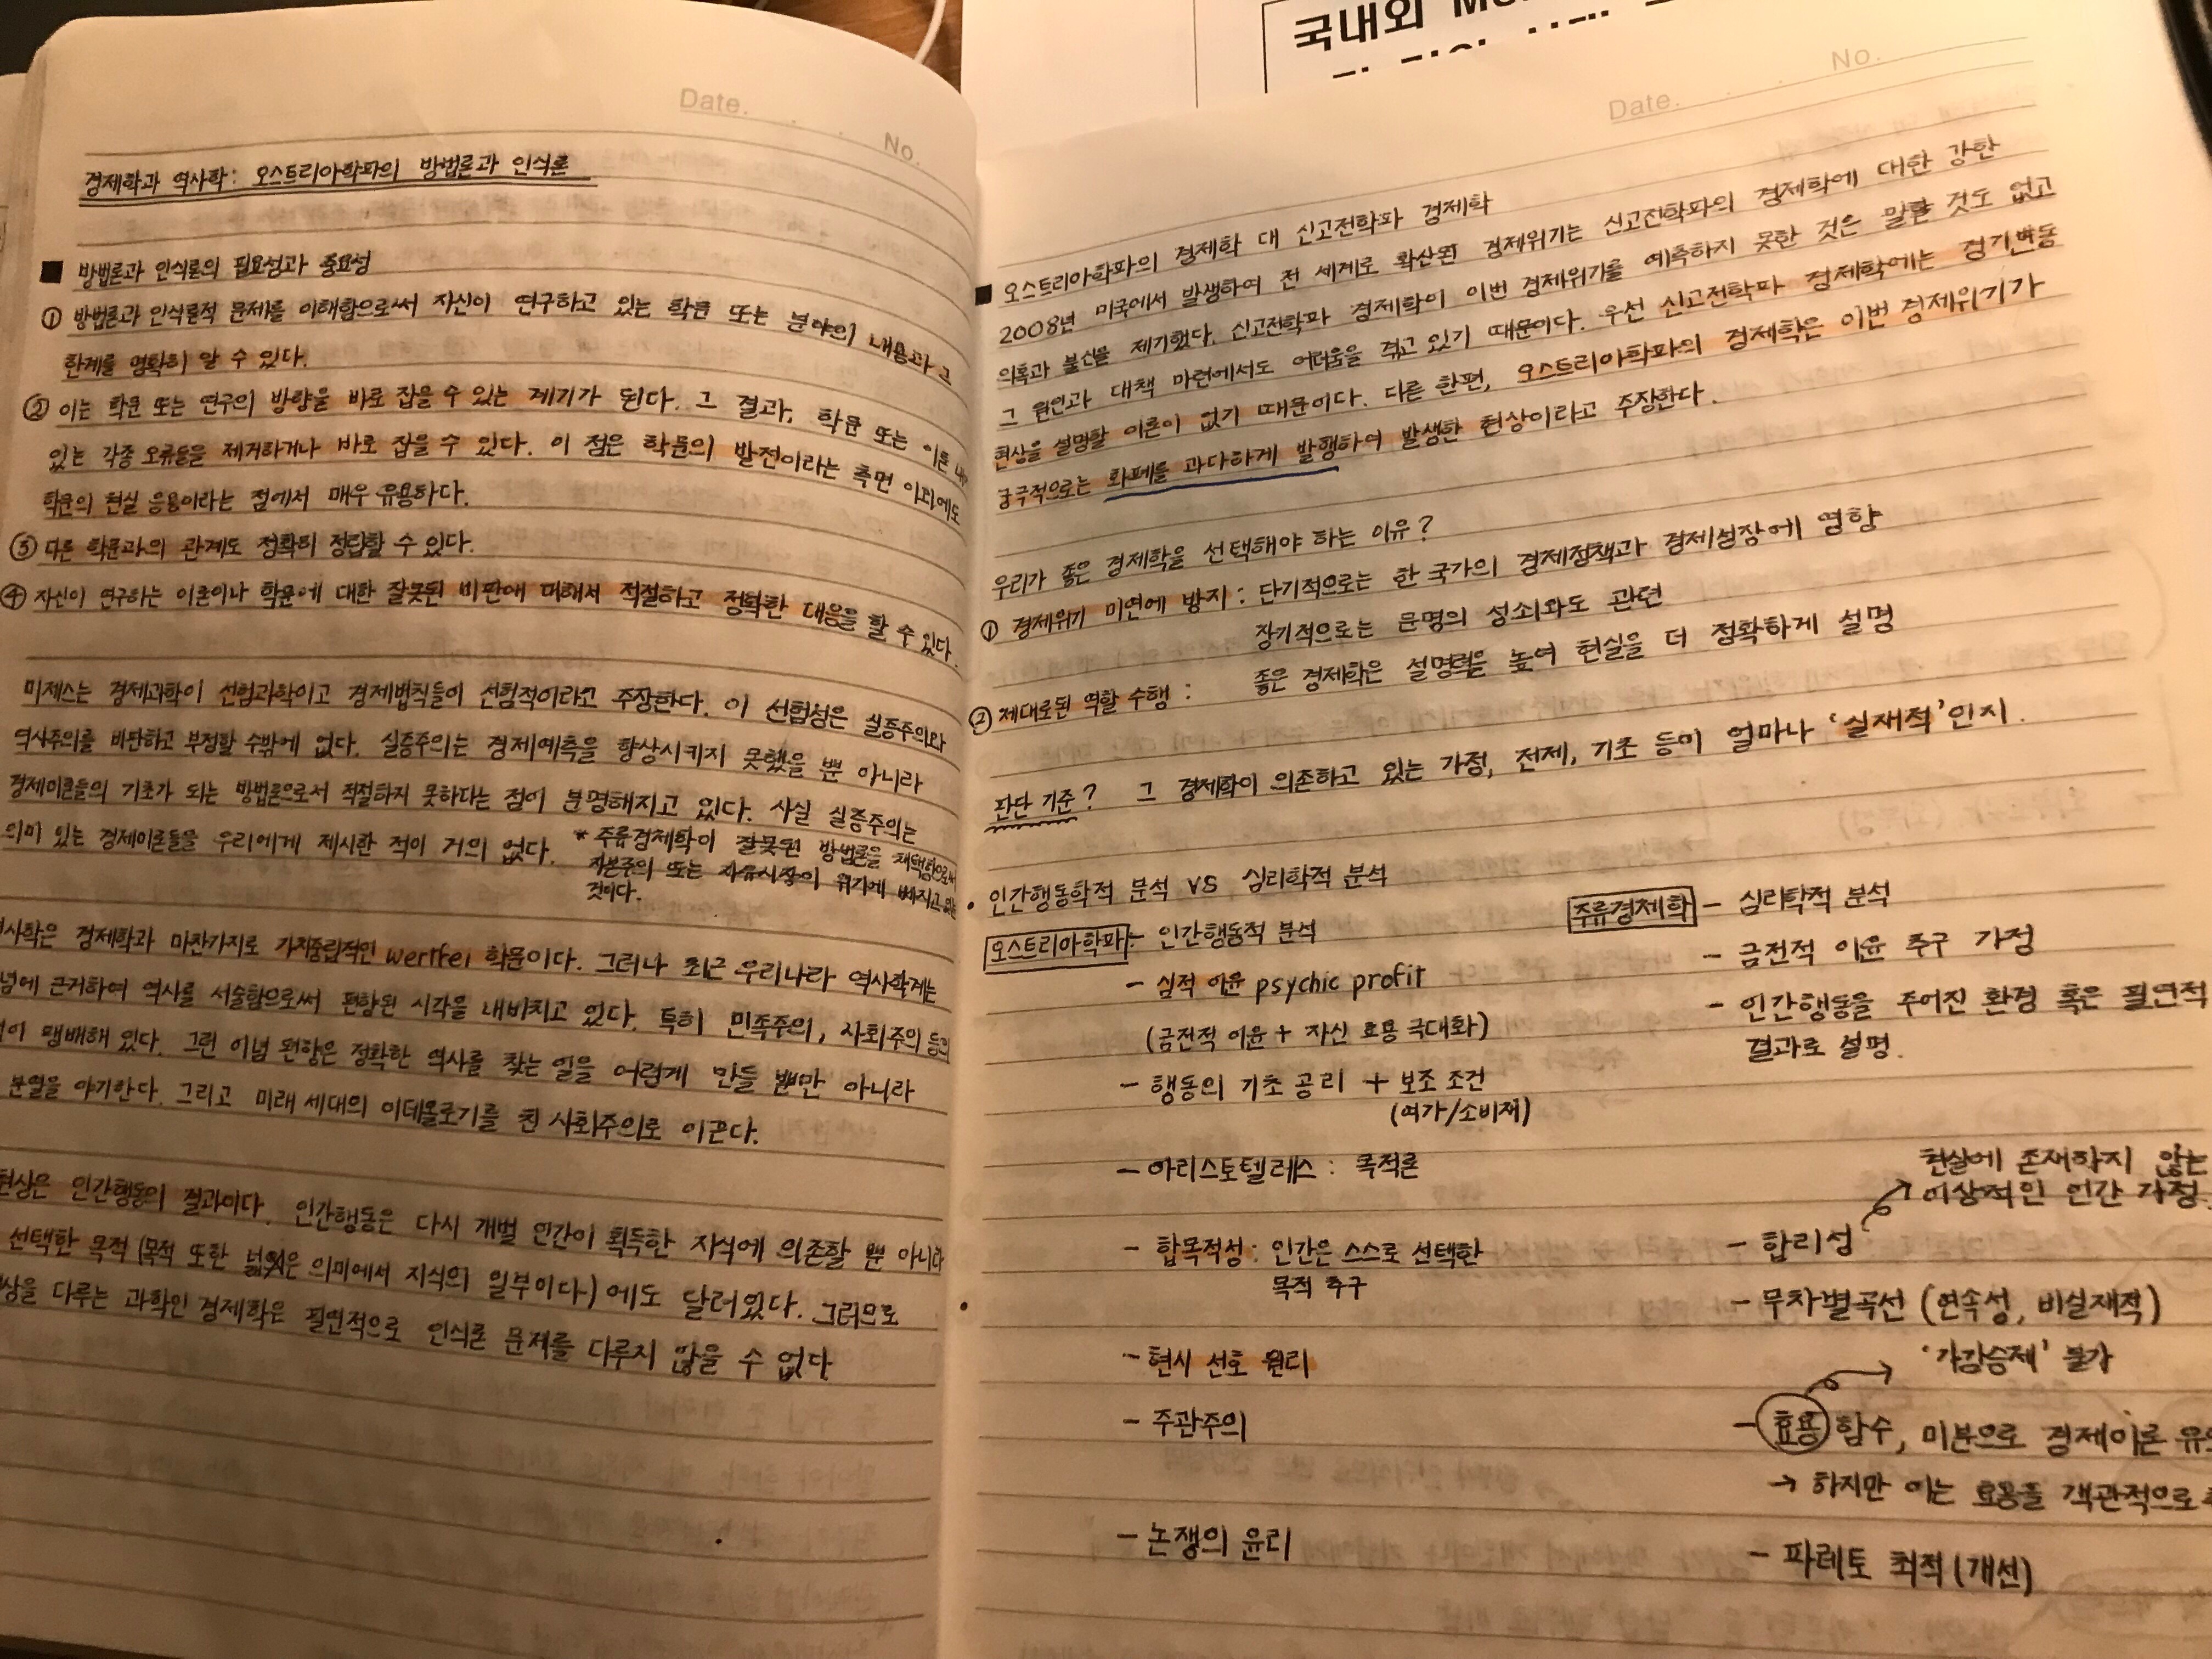 Date. . . No.
경제학과 역사학: 오스트리아학파의 방법론과 인식론
■ 방법론과 인식론의 필요성과 중요성
① 방법론과 인식론적 문제를 이해함으로써 자신이 연구하고 있는 학문 또는 분야의 내용과 그
한계를 명확히 알 수 있다.
② 이는 학문 또는 연구의 방향을 바로 잡을 수 있는 계기가 된다. 그 결과, 학문 또는 이론
있는 각종 오류들을 제거하거나 바로 잡을 수 있다. 이 점은 학문의 발전이라는 측면 이외에도
학문의 현실 응용이라는 점에서 매우 유용하다.
③ 다른 학문과의 관계도 정확히 정립할 수 있다.
④ 자신이 연구하는 이론이나 학문에 대한 잘못된 비판에 대해서 적절하고 정확한 대응을 할 수 있다.
미제스는 경제과학이 선험과학이고 경제법칙들이 선험적이라고 주장한다. 이 선험성은 실증주의와
역사주의를 비판하고 부정할 수밖에 없다. 실증주의는 경제예측을 향상시키지 못했을 뿐 아니라
경제이론들의 기초가 되는 방법론으로서 적절하지 못하다는 점이 분명해지고 있다. 사실 실증주의는
의미 있는 경제이론들을 우리에게 제시한 적이 거의 없다.
* 주류경제학이 잘못된 방법론을 채택함으로써
자본주의 또는 자유시장이 위기에 빠지고 있는
것이다.
사학은 경제학과 마찬가지로 가치중립적인 wertfei 학문이다. 그러나 최근 우리나라 역사학계는
념에 근거하여 역사를 서술함으로써 편향된 시각을 내비치고 있다. 특히 민족주의, 사회주의 등의
이 팽배해 있다. 그런 이념 편향은 정확한 역사를 찾는 일을 어렵게 만들 뿐만 아니라
분열을 야기한다. 그리고 미래 세대의 이데올로기를 친 사회주의로 이끈다.
현상은 인간행동의 결과이다. 인간행동은 다시 개별 인간이 획득한 지식에 의존할 뿐 아니라
선택한 목적 (목적 또한 넓은 의미에서 지식의 일부이다)에도 달려있다. 그러므로
상을 다루는 과학인 경제학은 필연적으로 인식론 문제를 다루지 않을 수 없다
국내외
Date. . . No.
■ 오스트리아학파의 경제학 대 신고전학파 경제학
2008년 미국에서 발생하여 전 세계로 확산된 경제위기는 신고전학파의 경제학에 대한 강한
의혹과 불신을 제기했다. 신고전학파 경제학이 이번 경제위기를 예측하지 못한 것은 말할 것도 없고
그 원인과 대책 마련에서도 어려움을 겪고 있기 때문이다. 우선 신고전학파 경제학에는 경기변동
현상을 설명할 이론이 없기 때문이다. 다른 한편, 오스트리아학파의 경제학은 이번 경제위기가
궁극적으로는 화폐를 과다하게 발행하여 발생한 현상이라고 주장한다.
우리가 좋은 경제학을 선택해야 하는 이유?
① 경제위기 미연에 방지: 단기적으로는 한 국가의 경제정책과 경제성장에 영향
장기적으로는 문명의 성쇠와도 관련
② 제대로된 역할 수행: 좋은 경제학은 설명력을 높여 현실을 더 정확하게 설명
판단 기준? 그 경제학이 의존하고 있는 가정, 전제, 기초 등이 얼마나 '실재적'인지.
• 인간행동학적 분석 VS 심리학적 분석
오스트리아학파 - 인간행동적 분석
- 심적 이윤 psychic profit
(금전적 이윤 + 자신 효용 극대화)
- 행동의 기초 공리 + 보조 조건
(여가/소비재)
- 아리스토텔레스: 목적론
- 합목적성: 인간은 스스로 선택한
목적 추구
- 현시 선호 원리
- 주관주의
- 논쟁의 윤리
주류경제학 - 심리학적 분석
- 금전적 이윤 추구 가정
- 인간행동을 주어진 환경 혹은 필연적
결과로 설명.
현실에 존재하지 않는
이상적인 인간 가정.
- 합리성
- 무차별곡선 (연속성, 비실재적)
'가감승제' 불가
- 효용 함수, 미분으로 경제이론
→ 하지만 이는 효용을 객관적으로
- 파레토 최적 (개선)